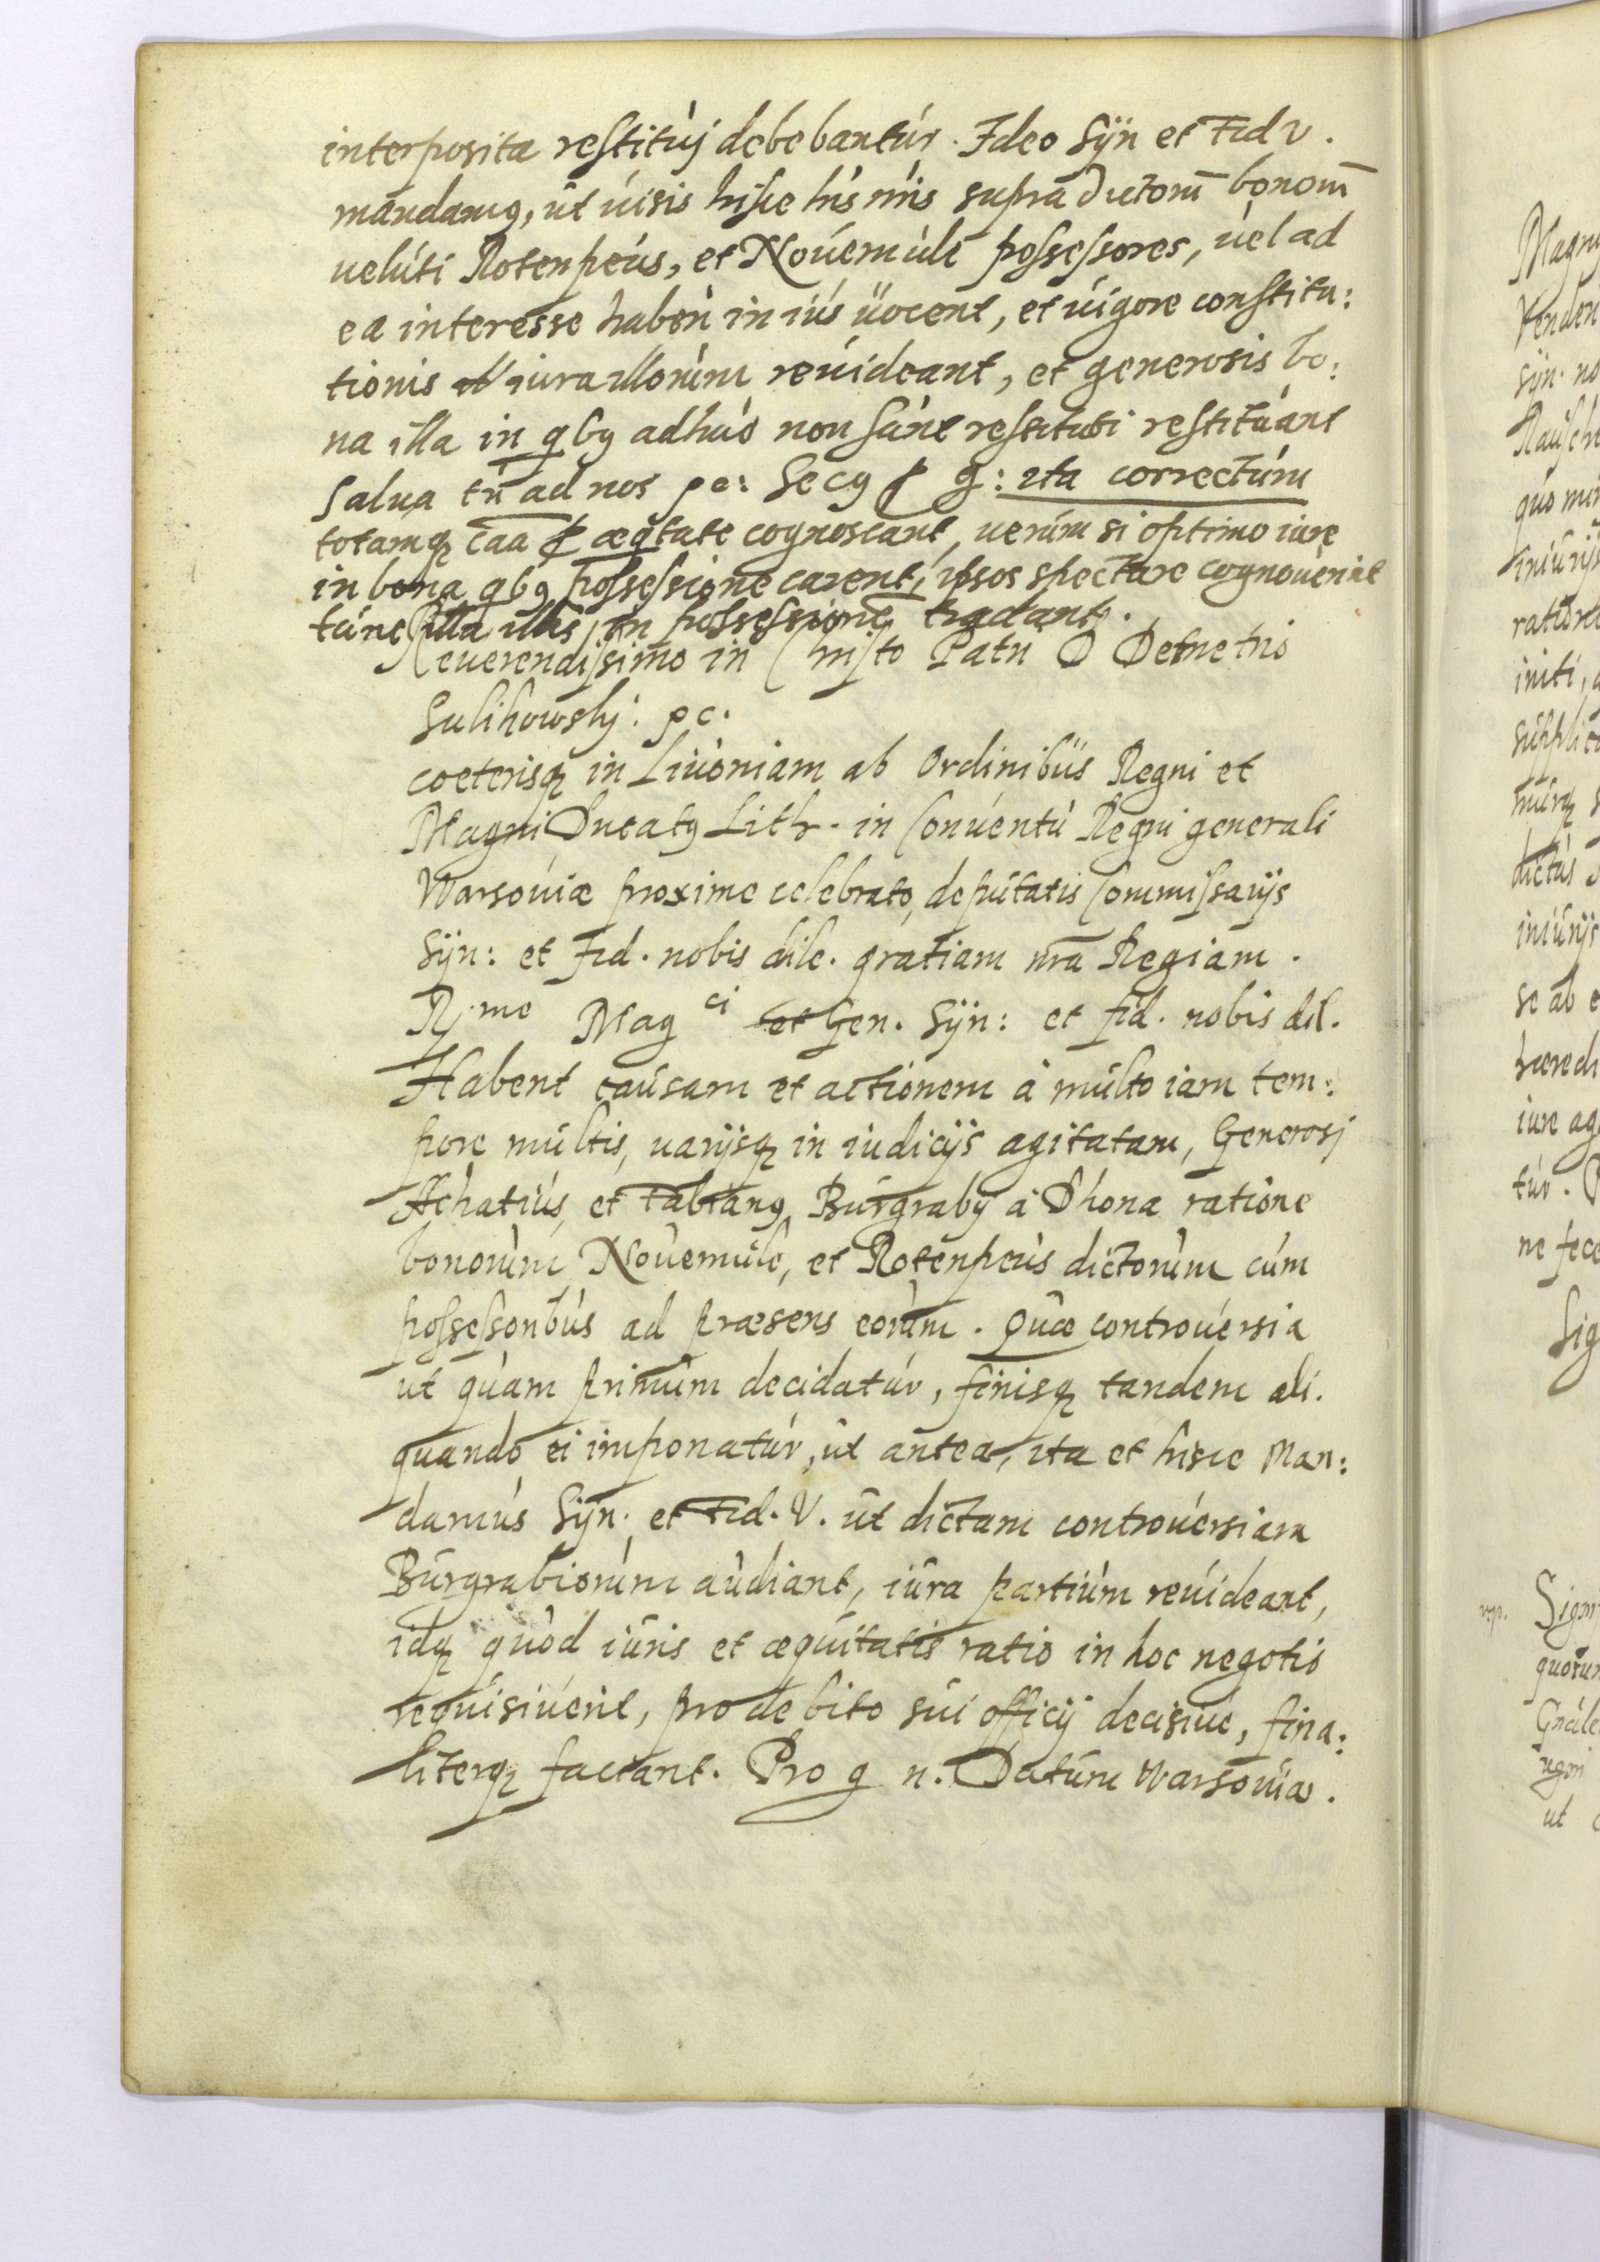 interposita restituj debebantur. Ideo Syn et Fid V.
mandamq, ut uisis hisce lris nris supra dictorm bonorm
ueluti Rotenpeus, et Nouemule possessores, uel ad
ea interesse haben in ius uocent, et uigore constitu:
tionis iura illorum reuideant, et generosis bo:
na illa in qbq adhuc non sunt restituti restituant
Salua tn ad nos pe: Secq : ita correctum
totamq caa p aeqtate cognoscant, uerum si optimo iure
in bona qbq possessione carent, ipsos spectare cognouerint
tunc illa illis in possessione tradant.
Reuerendissimo in Christo Patri D Demetrio
Sulikowskj: pc.
coeterisq in Liuoniam ab Ordinibus Regni et
Magni Ducatq Lith. in Conuentu Regni generali
Warsouiae proxime celebrato, deputatis Commissarijs
Syn: et Fid. nobis dile. gratiam nra Regiam.
R me Mag ci et Gen. Syn: et fid. nobis dil.
Habent causam et actionem a multo iam tem:
pore multis, uarijsq in iudicijs agitatam, Generosj
Achatius, et Fabianq Burgrabij a Dhona ratione
bonorum Nouemule, et Rotenpeus dictorum cum
possessoribus ad praesens eorum. Quae controuersia
ut quam primum decidatur, finisq tandem ali.
quando ei imponatur, ut antea, ita et hisce Man:
damus Syn. et Fid. V. ut dictam controuersiam
Burgrabiorum audiant, iura partium reuideant,
idq quod iuris et aequitatis ratio in hoc negotio
requisiuerit, pro debito sui officij decisiue, fina:
literq faciant. Pro g n. Datum Warsouiae.